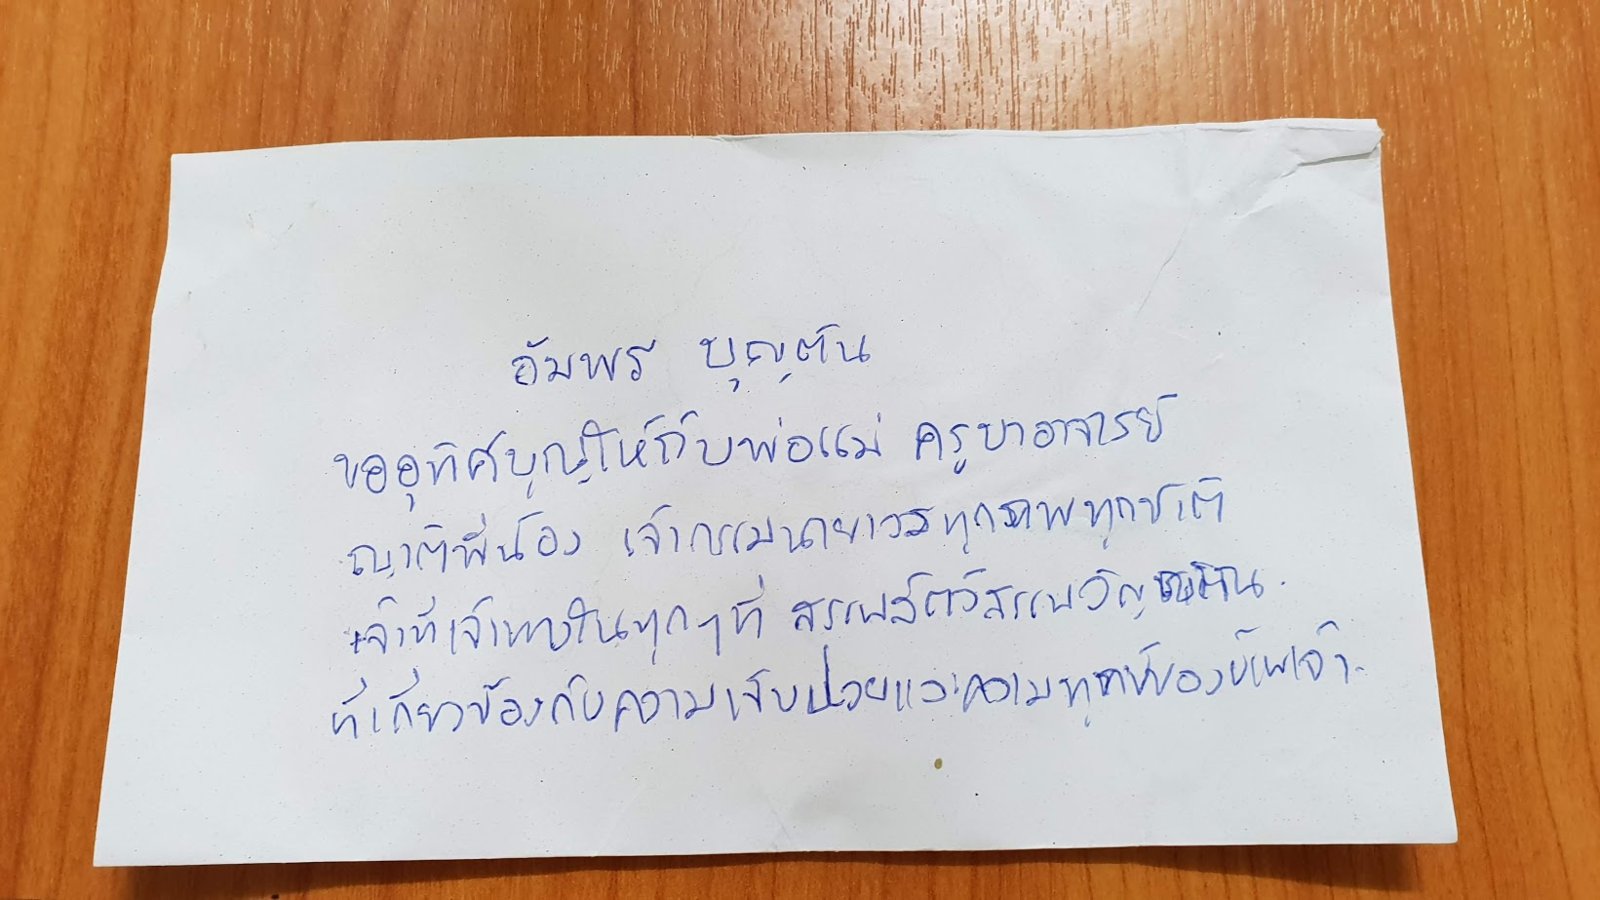 อัมพร บุญตัน
ขออุทิศบุญให้กับพ่อแม่ ครูบาอาจารย์
ญาติพี่น้อง เจ้ากรรมนายเวรทุกภพทุกชาติ
เจ้าที่เจ้าทางในทุกๆที่ สรรพสัตว์สรรพวิญญาณ
ที่เกี่ยวข้องกับความเจ็บป่วยและความทุกข์ของข้าพเจ้า.